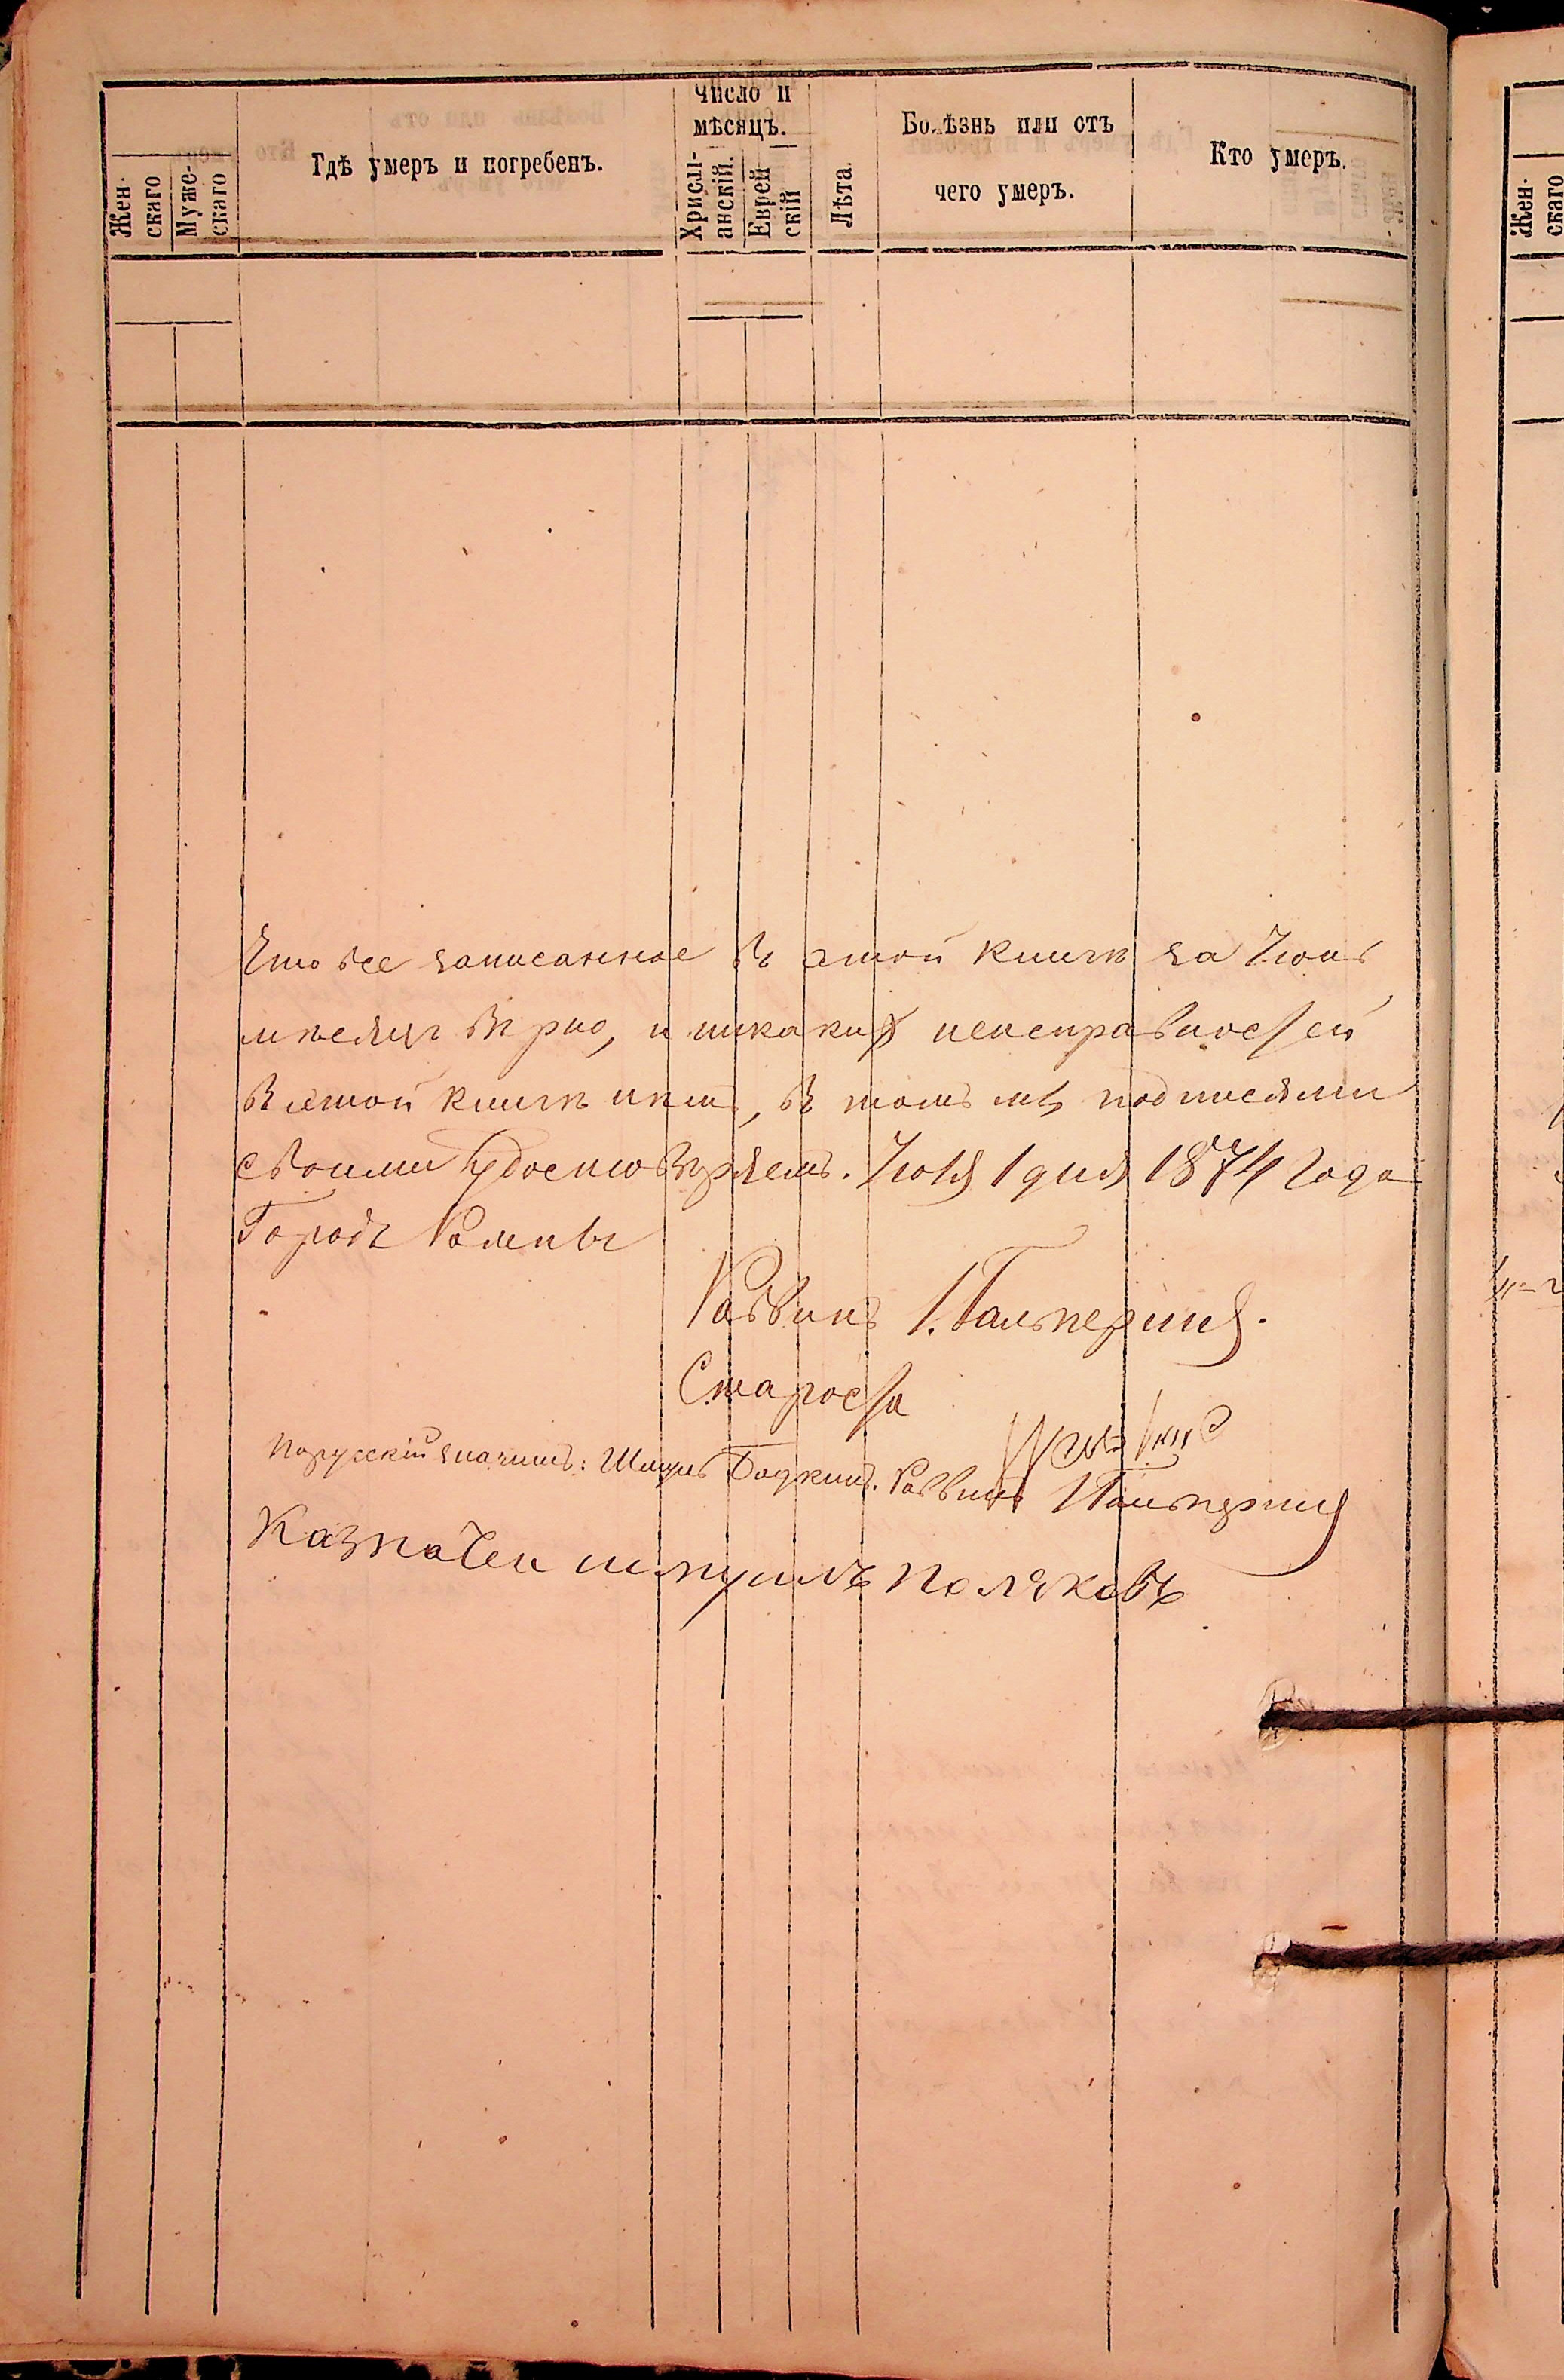 Жен-
скаго
Муже-
скаго
Гдѣ умеръ и погребенъ.
Число и
мѣсяцъ.
Христі-
анскій.
Еврей
скій
Лѣта.
Болѣзнь или отъ
чего умеръ.
Кто умеръ.
Жен-
скаго
Что все записанное въ этой книгѣ за Іюнь
мѣсяцъ вѣрно, и никакихъ неисправностей
въ этой книгѣ нѣтъ, въ томъ мы подписями
своими удостовѣряемъ. Іюля 1 дня 1874 года
Городъ Ромны
Раввинъ І. Гальперинъ.
Староста
По русскій значитъ: Раввинъ І Гальперинъ
Казначеи Полековъ